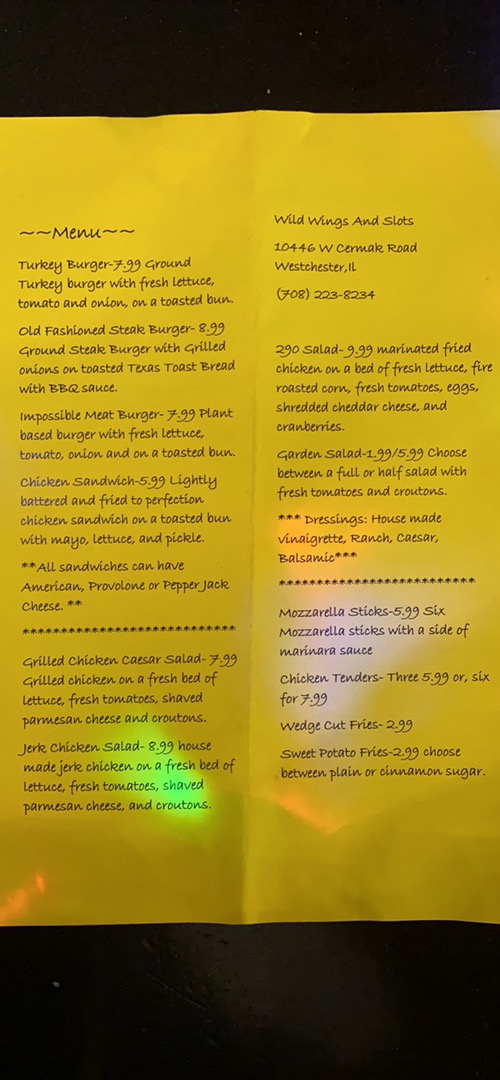 ~~Menu~~
Turkey Burger-7.99 Ground
Turkey burger with fresh lettuce,
tomato and onion, on a toasted bun.
Old Fashioned Steak Burger- 8.99
Ground Steak Burger with Grilled
onions on toasted Texas Toast Bread
with BBQ sauce.
Impossible Meat Burger- 7.99 Plant
based burger with fresh lettuce,
tomato, onion and on a toasted bun.
Chicken Sandwich-5.99 Lightly
battered and fried to perfection
chicken sandwich on a toasted bun
with mayo, lettuce, and pickle.
**All sandwiches can have
American, Provolone or Pepper Jack
Cheese. **
***************************
Grilled Chicken Caesar Salad- 7.99
Grilled chicken on a fresh bed of
lettuce, fresh tomatoes, shaved
parmesan cheese and croutons.
Jerk Chicken Salad- 8.99 house
made jerk chicken on a fresh bed of
lettuce, fresh tomatoes, shaved
parmesan cheese, and croutons.
Wild Wings And Slots
10446 W Cermak Road
Westchester,Il
(708) 223-8234
290 Salad- 9.99 marinated fried
chicken on a bed of fresh lettuce, fire
roasted corn, fresh tomatoes, eggs,
shredded cheddar cheese, and
cranberries.
Garden Salad-1.99/5.99 Choose
between a full or half salad with
fresh tomatoes and croutons.
*** Dressings: House made
vinaigrette, Ranch, Caesar,
Balsamic***
*************************
Mozzarella Sticks-5.99 Six
Mozzarella sticks with a side of
marinara sauce
Chicken Tenders- Three 5.99 or, six
for 7.99
Wedge Cut Fries- 2.99
Sweet Potato Fries-2.99 choose
between plain or cinnamon sugar.